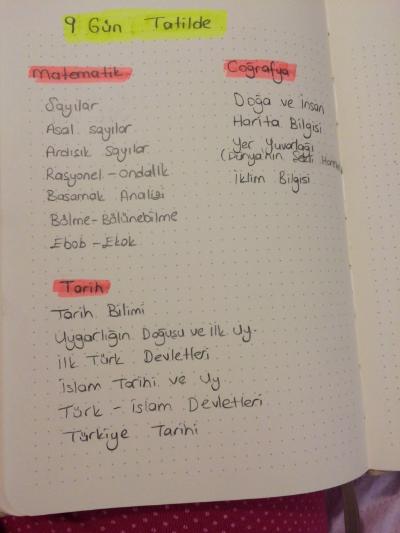 9 Gün Tatilde
Matematik
Sayılar
Asal sayılar
Ardışık Sayılar
Rasyonel - Ondalık
Basamak Analizi
Bölme - Bölünebilme
Ebob - Ekok
Coğrafya
Doğa ve insan
Harita Bilgisi
Yer Yuvarlağı
(Dünya'nın Şekli
İklim Bilgisi
Tarih
Tarih Bilimi
Uygarlığın Doğuşu ve İlk Uy.
İlk Türk Devletleri
İslam Tarihi ve Uy
Türk - İslam Devletleri
Türkiye Tarihi